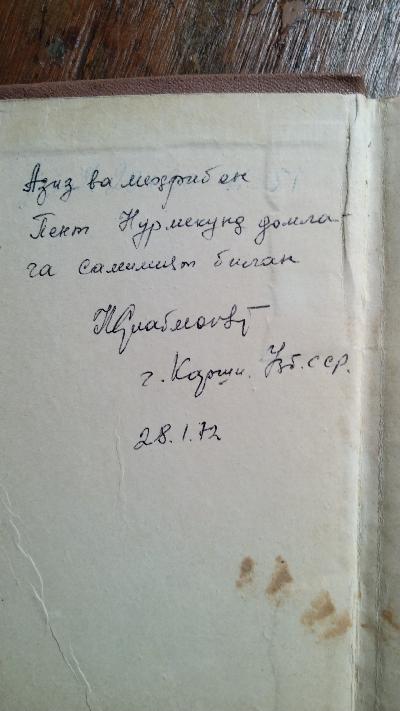 Азиз ва меҳрибон
Пент Нурмекунд домла-
га самимият билан
г. Карши. Узб. ССР.
28.1.72